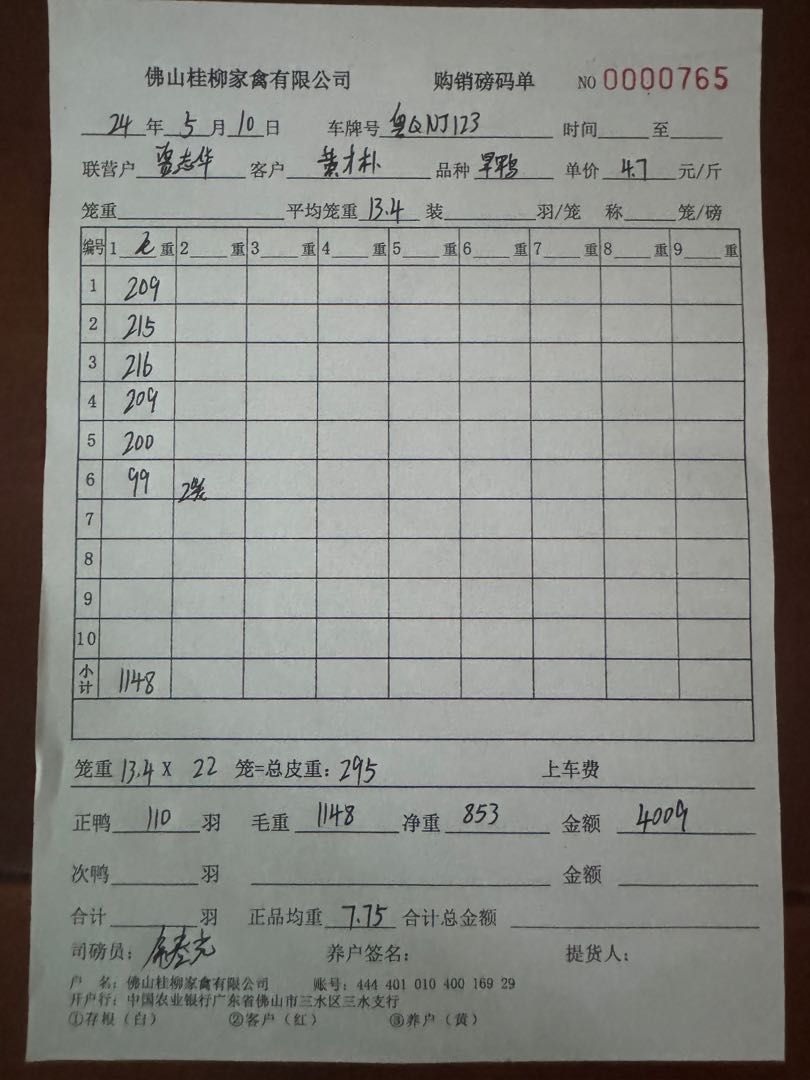 佛山桂柳家禽有限公司 购销磅码单 NO 0000765
24 年 5 月 10 日 车牌号 QNJ123 时间 至
联营户 志华 客户 黄才朴 品种 旱鸭 单价 4.7 元/斤
笼重 平均笼重 13.4 装 羽/笼 称 笼/磅
编号 1 毛 重 2 重 3 重 4 重 5 重 6 重 7 重 8 重 9 重
1 209
2 215
3 216
4 209
5 200
6 99 2笼
7
8
9
10
小计 1148
笼重 13.4 X 22 笼=总皮重: 295 上车费
正鸭 110 羽 毛重 1148 净重 853 金额 4009
次鸭 羽 金额
合计 羽 正品均重 7.75 合计总金额
司磅员: 养户签名: 提货人:
户 名: 佛山桂柳家禽有限公司 账号: 444 401 010 400 169 29
开户行: 中国农业银行广东省佛山市三水区三水支行
①存根（白） ②客户（红） ③养户（黄）